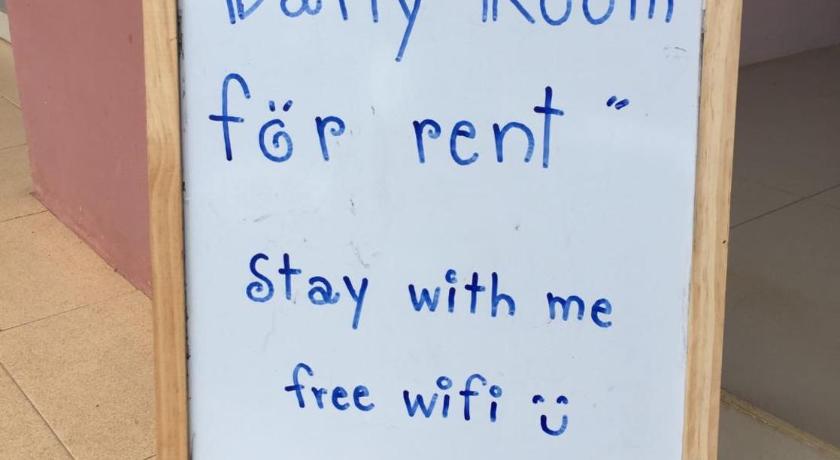 Daily Room
för rent "
Stay with me
free wifi